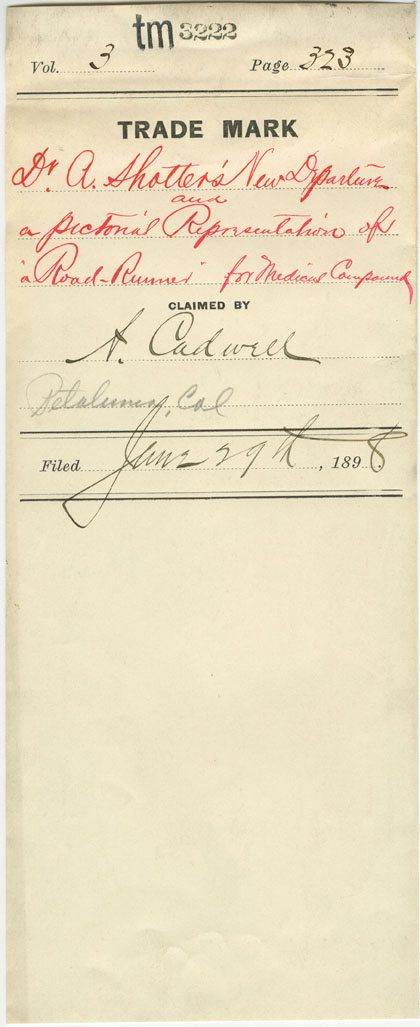 tm 3222
Vol. 3 Page 323
TRADE MARK
Dr A. Shotter's New Departure
and
a pictorial Representation of
"a Road-Runner" for Medical Compound
CLAIMED BY
A. Cadwell
Petaluma, Cal
Filed June 29th, 1898.